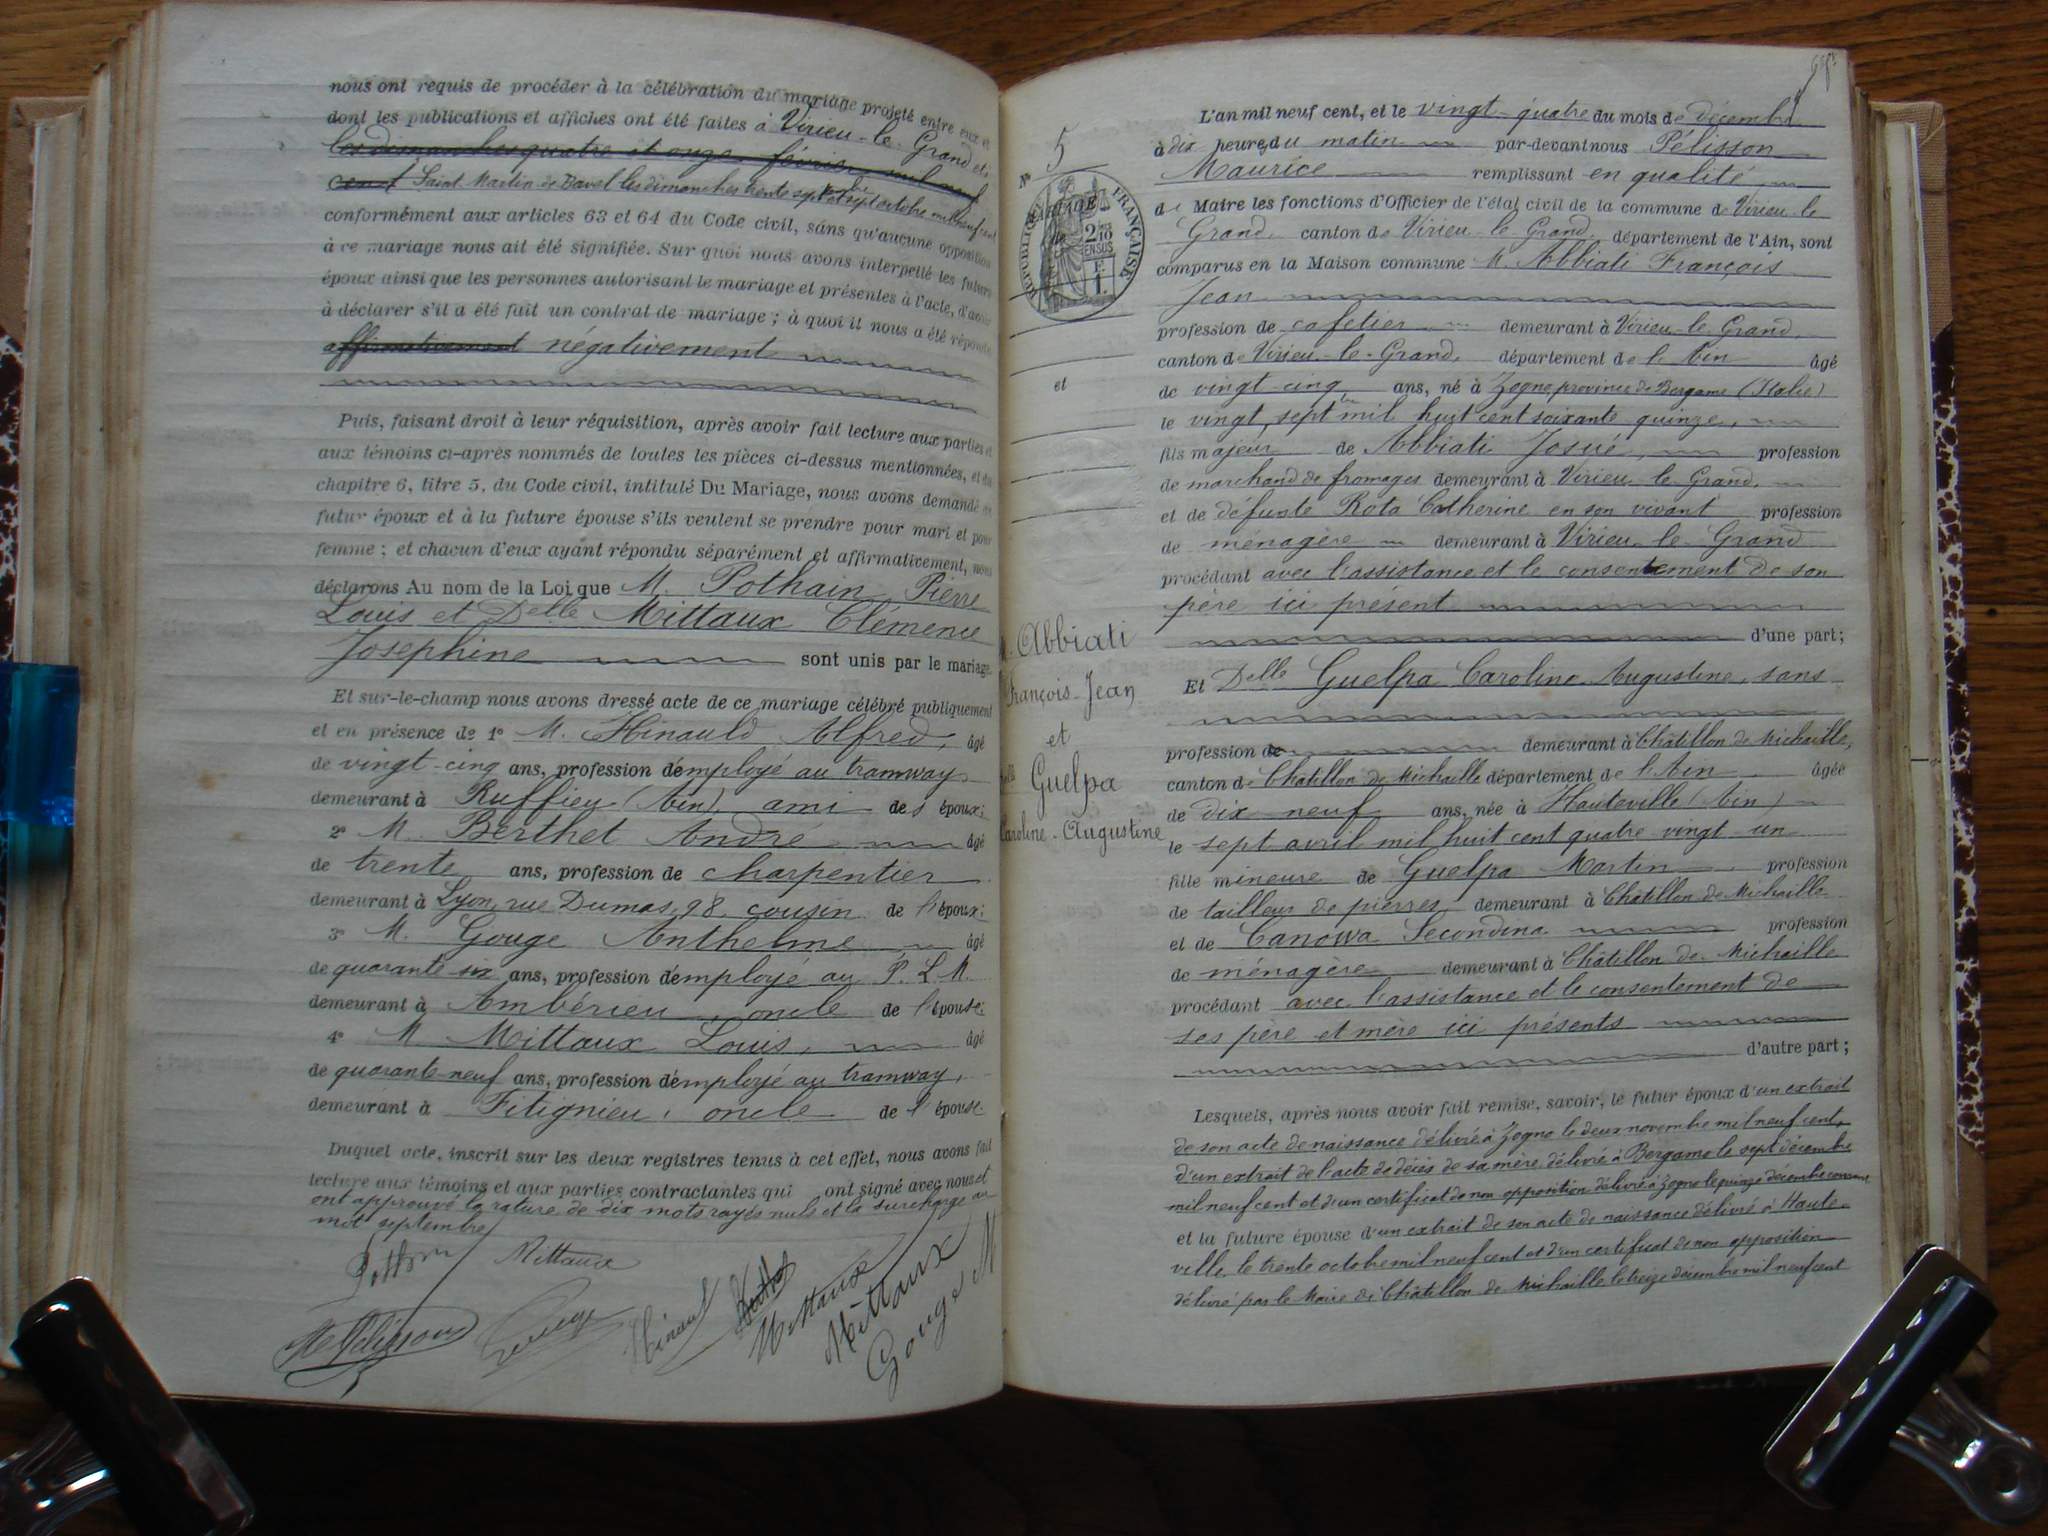 nous ont requis de procéder à la célébration du mariage projeté entre eux et
dont les publications et affiches ont été faites à Virieu-le-Grand et à
les dimanches quatre et onze février mil neuf
cent Saint Martin de Bavel les dimanches trente septembre et sept octobre mil neuf cent
conformément aux articles 63 et 64 du Code civil, sans qu'aucune opposition
à ce mariage nous ait été signifiée. Sur quoi nous avons interpellé les futurs
époux ainsi que les personnes autorisant le mariage et présentes à l'acte, d'avoir
à déclarer s'il a été fait un contrat de mariage ; à quoi il nous a été répondu
affirmativement négativement
Puis, faisant droit à leur réquisition, après avoir fait lecture aux parties et
aux témoins ci-après nommés de toutes les pièces ci-dessus mentionnées, et du
chapitre 6, titre 5, du Code civil, intitulé Du Mariage, nous avons demandé au
futur époux et à la future épouse s'ils veulent se prendre pour mari et pour
femme ; et chacun d'eux ayant répondu séparément et affirmativement, nous
déclarons Au nom de la Loi que M. Pothain Pierre
Louis et Delle Mittaux Clémence
Josephine sont unis par le mariage.
Et sur-le-champ nous avons dressé acte de ce mariage célébré publiquement
et en présence de 1° M. Hinauld Alfred, âgé
de vingt-cinq ans, profession d'employé au tramway
demeurant à Ruffieu (Ain) ami des époux;
2° M. Berthet André âgé
de trente ans, profession de charpentier
demeurant à Lyon, rue Dumas, 98. cousin de l'époux;
3° M. Gouge Anthelme âgé
de quarante six ans, profession d'employé au P. L. M.
demeurant à Ambérieu, oncle de l'épouse;
4° M Mittaux Louis, âgé
de quarante-neuf ans, profession d'employé au tramway,
demeurant à Fitignieu, oncle de l'épouse
Duquel acte, inscrit sur les deux registres tenus à cet effet, nous avons fait
lecture aux témoins et aux parties contractantes qui ont signé avec nous et
ont approuvé la rature de dix mots rayés nuls et la surcharge au
mot septembre
Pothain Mittaux
M Pélisson Gouge Hinauld Berthet Mittaux Mittaux Gouge M
N° 5
RÉPUBLIQUE FRANÇAISE
2/10 EN SUS
F. 1.
et
M. Abbiati
François-Jean
et
Delle Guelpa
Caroline-Augustine
L'an mil neuf cent, et le vingt-quatre du mois de décembre
à dix heures du matin par-devant nous Pélisson
Maurice remplissant en qualité
de Maire les fonctions d'Officier de l'état civil de la commune de Virieu-le
Grand, canton de Virieu-le-Grand, département de l'Ain, sont
comparus en la Maison commune M. Abbiati François
Jean
profession de cafetier demeurant à Virieu-le-Grand,
canton de Virieu-le-Grand, département de l'Ain âgé
de vingt-cinq ans, né à Zogno province de Bergame (Italie)
le vingt, sept in mil huit cent soixante quinze,
fils majeur de Abbiati Josué, profession
de marchand de fromages demeurant à Virieu-le-Grand,
et de défunte Rota Catherine en son vivant profession
de ménagère demeurant à Virieu-le-Grand
procédant avec l'assistance et le consentement de son
père ici présent
d'une part;
Et Delle Guelpa Caroline Augustine, sans
profession de demeurant à Châtillon de Michaille,
canton de Châtillon de Michaille département de l'Ain âgée
de dix neuf ans, née à Hauteville (Ain)
le sept avril mil huit cent quatre-vingt-un
fille mineure de Guelpa Martin profession
de tailleur de pierres demeurant à Châtillon de Michaille
et de Canowa Secondina profession
de ménagère demeurant à Châtillon de Michaille
procédant avec l'assistance et le consentement de
ses père et mère ici présents
d'autre part;
Lesquels, après nous avoir fait remise, savoir, le futur époux d'un extrait
de son acte de naissance délivré à Zogno le deux novembre mil neuf cent,
d'un extrait de l'acte de décès de sa mère délivré à Bergame le sept décembre
mil neuf cent et d'un certificat de non opposition délivré à Zogno le quinze décembre courant
et la future épouse d'un extrait de son acte de naissance délivré à Haute-
ville, le trente octobre mil neuf cent et d'un certificat de non opposition
délivré par le Maire de Châtillon de Michaille le treize décembre mil neuf cent